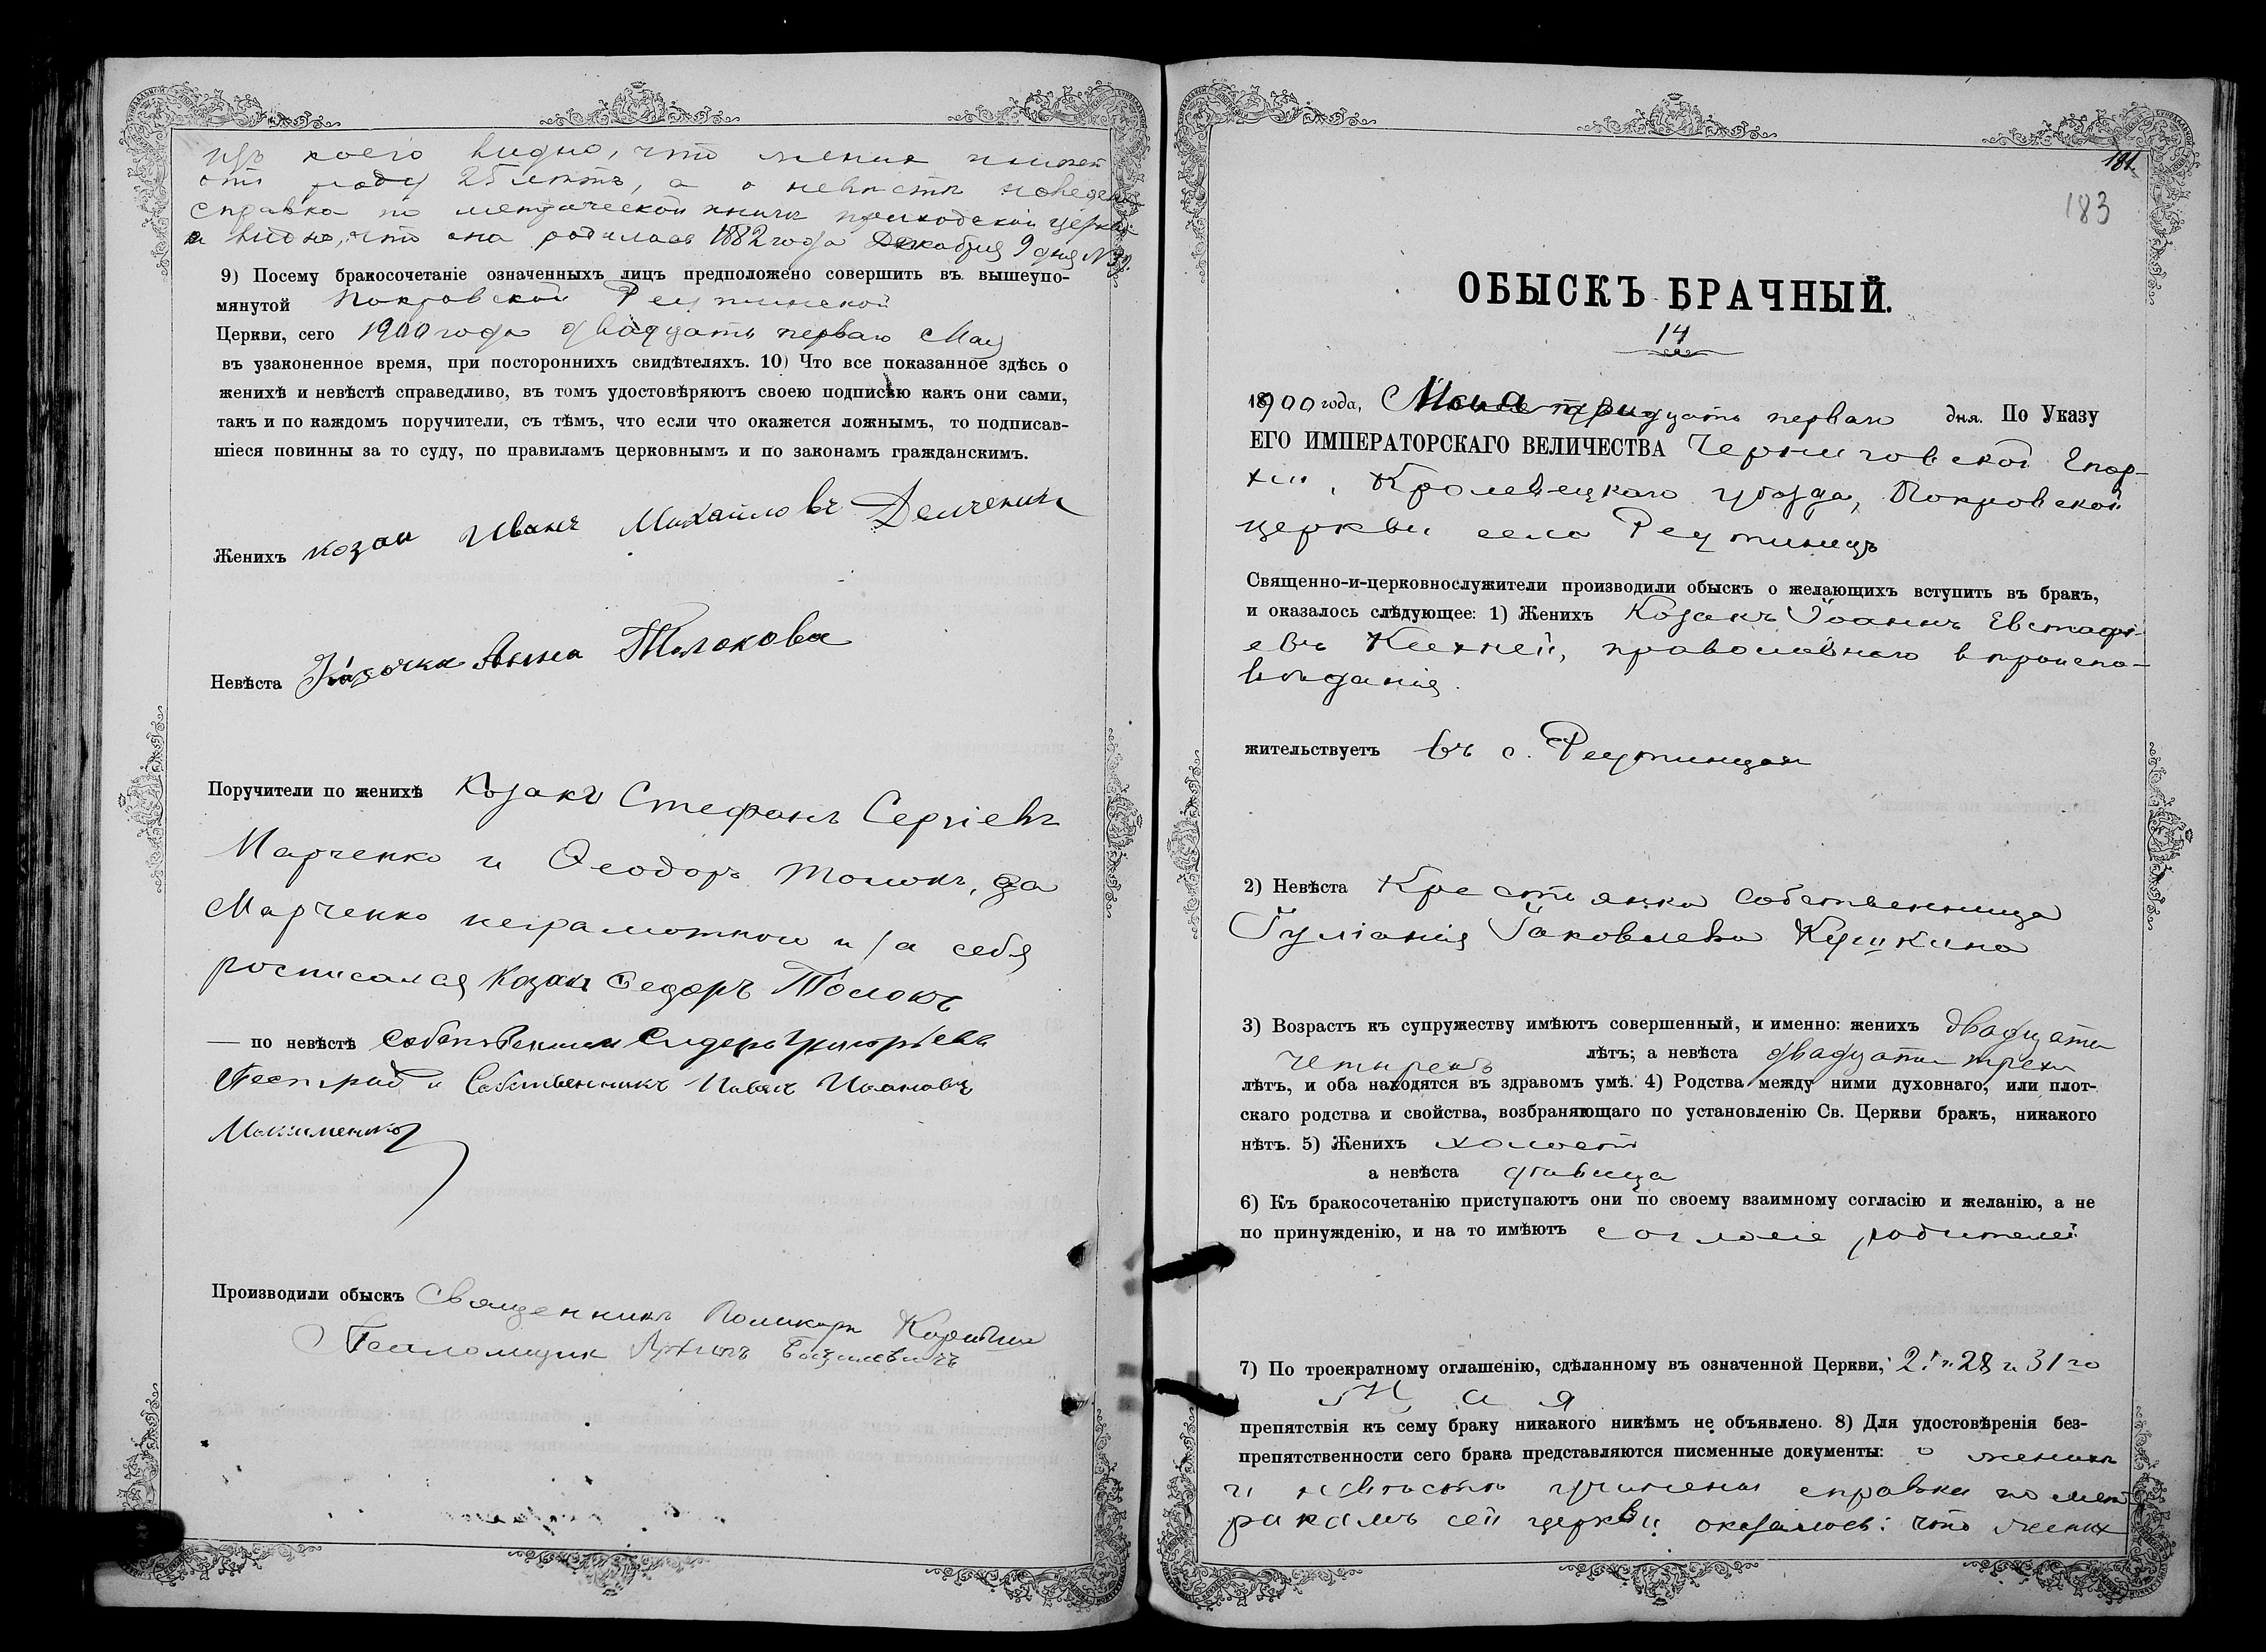 изъ коего видно, что жених имеет
отъ роду 25 летъ, а о невѣстѣ наведена
справка по метрической книги приходской церкви
и видно, что она родилась 1882 года Декабря 9 дня №
9) Посему бракосочетаніе означенныхъ лицъ предположено совершить въ вышеупо-
мянутой Покровской Реутинской
Церкви, сего 1900 года двадцать перваго Мая
въ узаконенное время, при постороннихъ свидѣтеляхъ. 10) Что все показанное здѣсь о
женихѣ и невѣстѣ справедливо, въ томъ удостовѣряютъ своею подписью какъ они сами,
такъ и по каждомъ поручители, съ тѣмъ, что если что окажется ложнымъ, то подписав-
шіеся повинны за то суду, по правиламъ церковнымъ и по законамъ гражданскимъ.
Женихъ козак Иванъ Михайловъ
Невѣста Козачка Анна Толокова
Поручители по женихѣ Козакъ Стефанъ Сергіевъ
Марченко и Ѳеодоръ Толокъ, за
Марченко неграмотнаго и за себя
росписался Козакъ Федоръ Толокъ
— по невѣстѣ Собственник Сидоръ Григорьевъ
и Собственникъ Ивановъ
Максименко
Производили обыскъ Священникъ Поликарпъ
Псаломщик
181
183
ОБЫСКЪ БРАЧНЫЙ.
14
1900 года, Мая тридцать перваго дня. По Указу
ЕГО ИМПЕРАТОРСКАГО ВЕЛИЧЕСТВА Черниговской Епар-
хіи, Кролевецкаго уѣзда, Покровской
церкви села Реутинецъ
Священно-и-церковнослужители производили обыскъ о желающихъ вступить въ бракъ,
и оказалось слѣдующее: 1) Женихъ Козакъ Іоаннъ Евстафі-
евъ православнаго вѣроиспо-
вѣданія.
жительствуетъ въ с. Реутинцахъ
2) Невѣста Крестьянка собственница
Іуліанія Іаковлева Кушкина
3) Возрастъ къ супружеству имѣютъ совершенный, и именно: женихъ двадцати
четырехъ лѣтъ; а невѣста двадцати трехъ
лѣтъ, и оба находятся въ здравомъ умѣ. 4) Родства между ними духовнаго, или плот-
скаго родства и свойства, возбраняющаго по установленію Св. Церкви бракъ, никакого
нѣтъ. 5) Женихъ холостъ
а невѣста дѣвица
6) Къ бракосочетанію приступаютъ они по своему взаимному согласію и желанію, а не
по принужденію, и на то имѣютъ согласіе родителей
7) По троекратному оглашенію, сдѣланному въ означенной Церкви, 21, 28 и 31 го
Мая
препятствія къ сему браку никакого никѣмъ не объявлено. 8) Для удостовѣренія без-
препятственности сего брака представляются писменные документы: о женихѣ
и невѣстѣ учинены справки по мет
рикамъ сей церкви оказалось: что жених